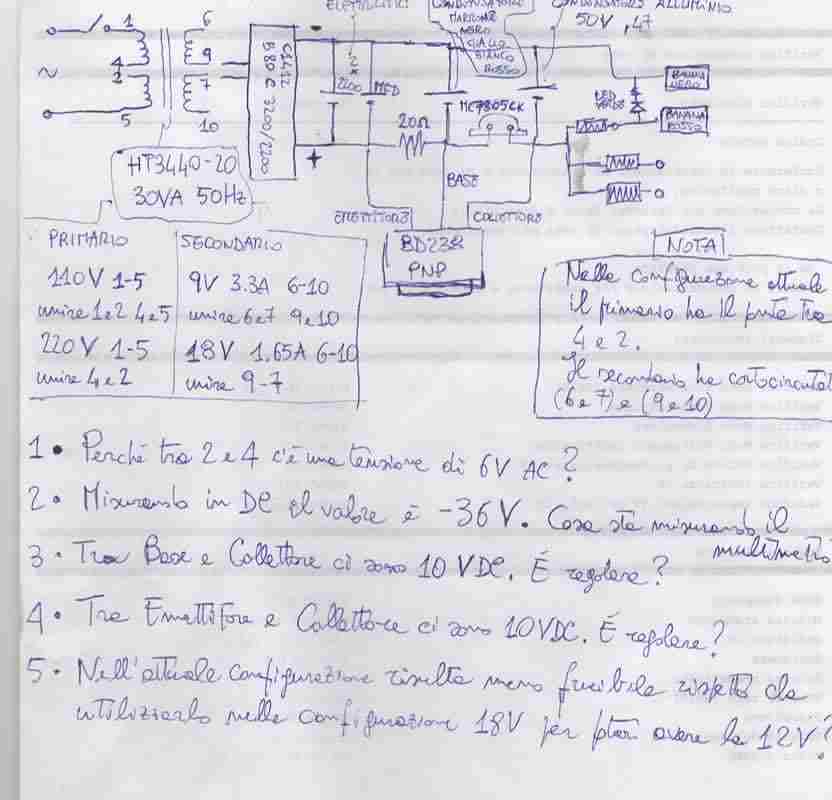 ELETTROLITICI
CONDENSATORE
MARRONE
NERO
GIALLO
BIANCO
ROSSO
CONDENSATORE ALLUMINIO
50V ,47
1
4
2
5
6
9
7
10
~
C1412
B80C 3200/2200
-
+
2x
2200
MCD
20Ω
MC7805CK
LED
VERDE
BANANA
NERO
BANANA
ROSSO
HT3440-20
30VA 50Hz
BASE
EMETTITORE
COLLETTORE
BD238
PNP
PRIMARIO
SECONDARIO
110V 1-5
9V 3.3A 6-10
unire 1e2 4e5
unire 6e7 9e10
220V 1-5
18V 1,65A 6-10
unire 4e2
unire 9-7
NOTA
Nella configurazione attuale
il primario ha il ponte tra
4 e 2.
Il secondario ha cortocircuitati
(6 e 7) e (9 e 10)
1• Perché tra 2 e 4 c'è una tensione di 6V AC?
2• Misurando in DC il valore è -36V. Cosa sta misurando il
multimetro
3• Tra Base e Collettore ci sono 10 VDC. È regolare?
4• Tra Emettitore e Collettore ci sono 10VDC. È regolare?
5• Nell'attuale configurazione risulta meno fruibile rispetto da
utilizzarlo nella configurazione 18V per poter avere la 12V?